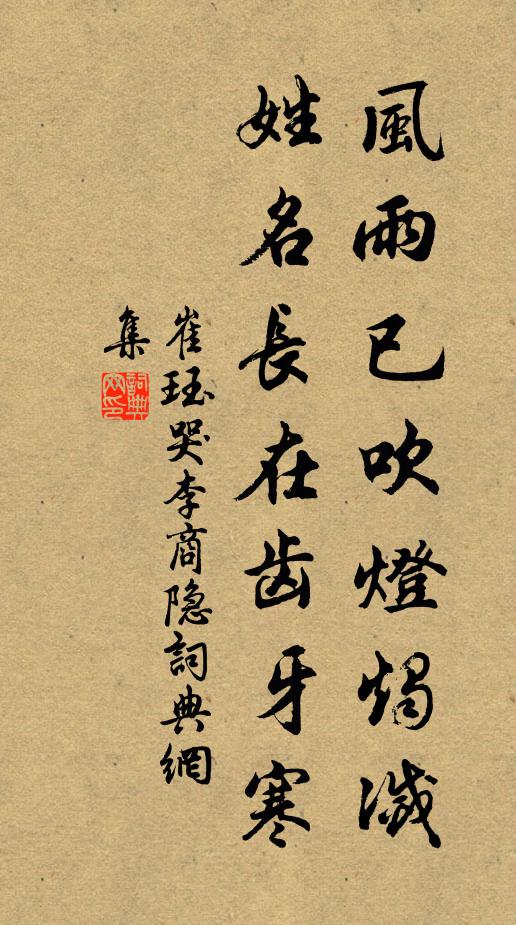 風雨已吹燈燭滅
姓名長在齿牙寒
崔珏哭李商隐詞典網
集
詞典网印